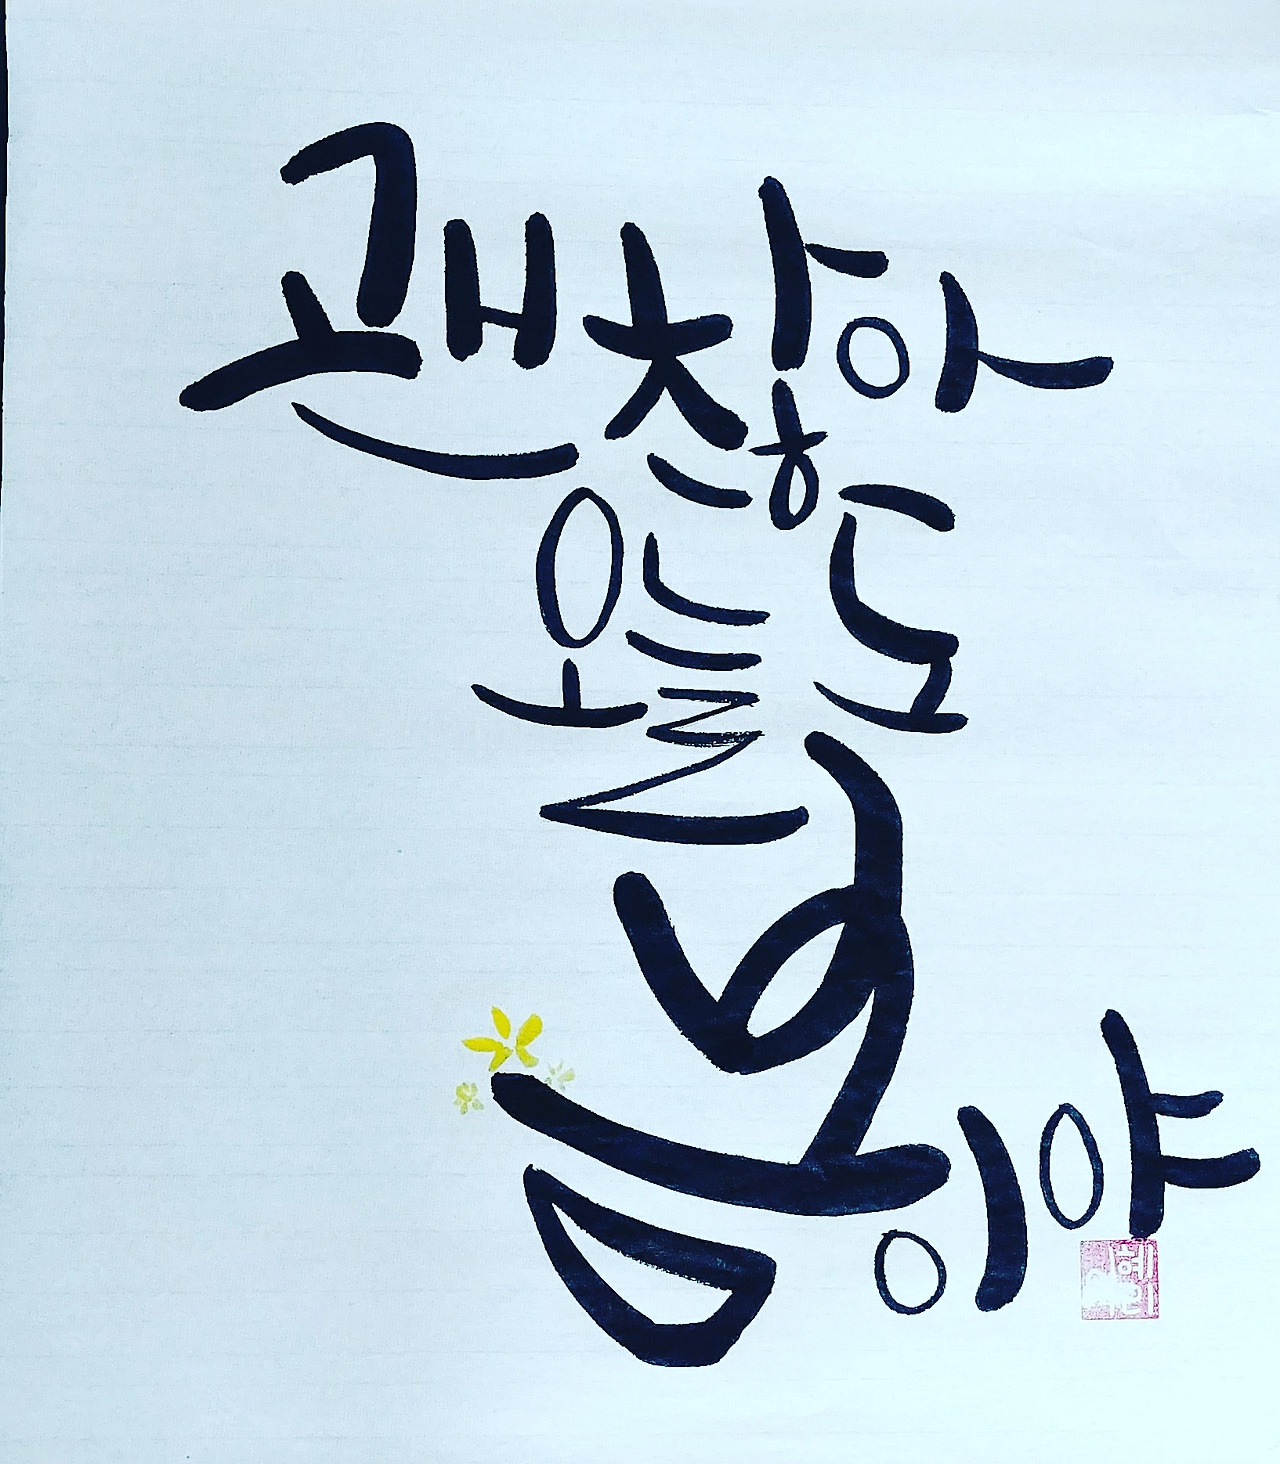 괜찮아
오늘도
봄이야